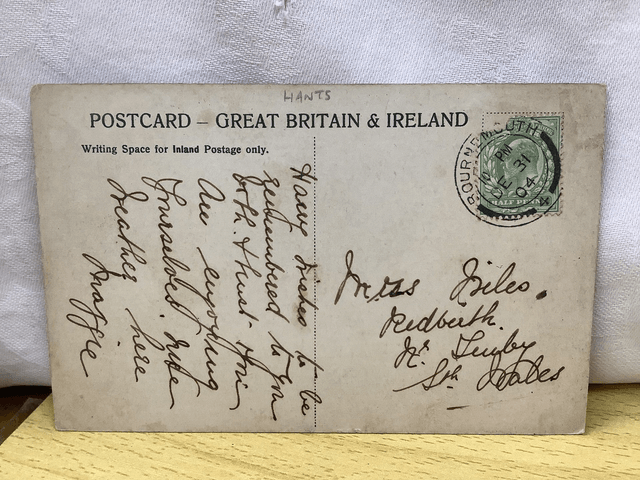 HANTS
POSTCARD – GREAT BRITAIN & IRELAND
Writing Space for Inland Postage only.
BOURNEMOUTH
PM
DE 31
04
4
HALF PENNY
Harry wishes to be
remembered to you
both. I trust you
are enjoying
yourselves. nice
weather here
Maggie
Miss
Redberth.
Nr Tenby
Sth Wales